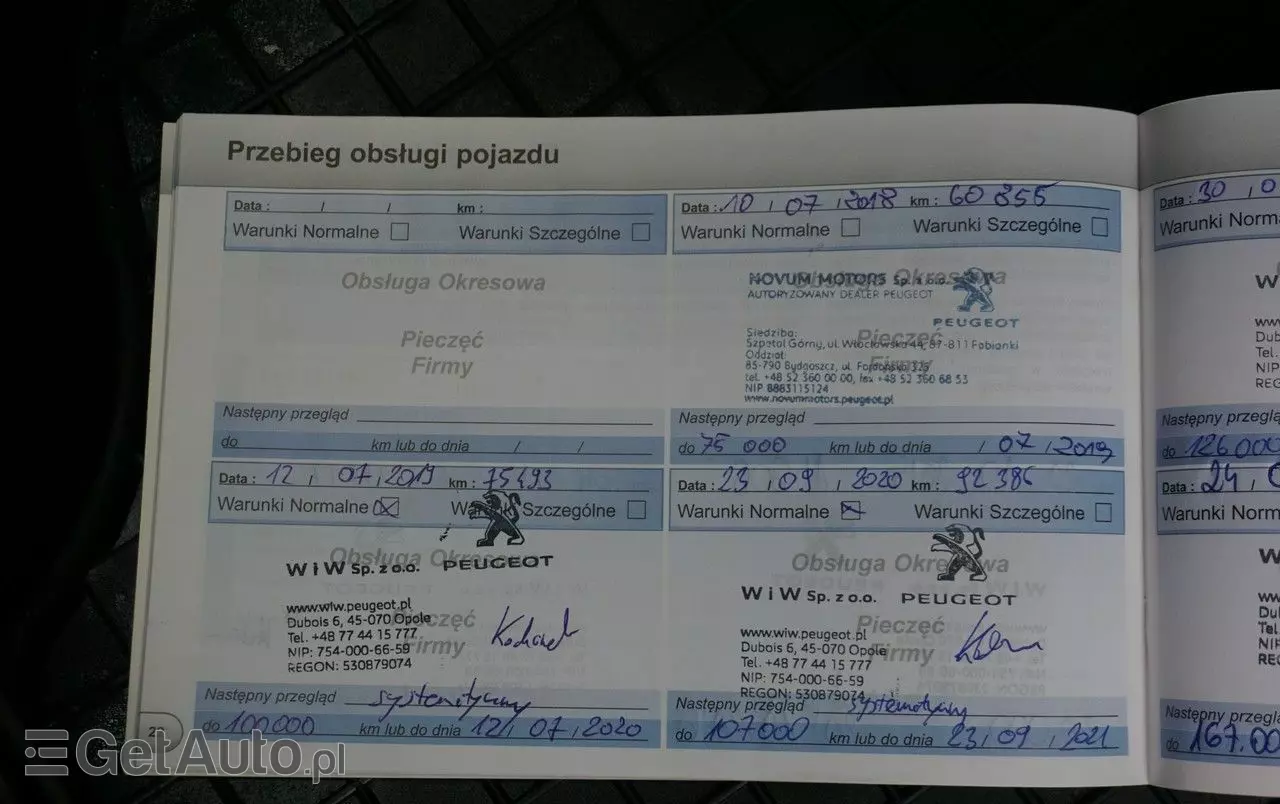 Przebieg obsługi pojazdu
Data : / / km :
Warunki Normalne Warunki Szczególne
Obsługa Okresowa
Pieczęć
Firmy
Następny przegląd
do km lub do dnia / /
Data : 10 / 07 / 2018 km : 60 855
Warunki Normalne Warunki Szczególne
Obsługa Okresowa
NOVUM MOTORS Sp. z o.o.
AUTORYZOWANY DEALER PEUGEOT
PEUGEOT
Pieczęć
Firmy
Siedziba:
Szpetal Górny, ul. Włocławska 44, 87-811 Fabianki
Oddział:
85-790 Bydgoszcz, ul. Fordońska
tel. +48 52 360 00 00, fax +48 52 360 68 53
NIP 8883115124
www.novummotors.peugeot.pl
Następny przegląd
do 75 000 km lub do dnia / 07 / 2019
Data : 12 / 07 / 2019 km : 75493
Warunki Normalne Warunki Szczególne
Obsługa Okresowa
W i W Sp. z o.o. PEUGEOT
Pieczęć
Firmy
www.wiw.peugeot.pl
Dubois 6, 45-070 Opole
Tel. +48 77 44 15 777
NIP: 754-000-66-59
REGON: 530879074
Następny przegląd systematyczny
do 100.000 km lub do dnia 12 / 07 / 2020
Data : 23 / 09 / 2020 km : 92 386
Warunki Normalne Warunki Szczególne
Obsługa Okresowa
W i W Sp. z o.o. PEUGEOT
Pieczęć
Firmy
www.wiw.peugeot.pl
Dubois 6, 45-070 Opole
Tel. +48 77 44 15 777
NIP: 754-000-66-59
REGON: 530879074
Następny przegląd systematyczny
do 107000 km lub do dnia 23 / 09 / 2021
Data : 30 / 0
Warunki Norm
W i
www
Dub
Tel.
NIP
REG
Następny przeglą
do 126.000
Data : 24 / 0
Warunki Norm
W
ww
Du
Tel
NIF
REG
Następny przeglą
do 167.00
GetAuto.pl